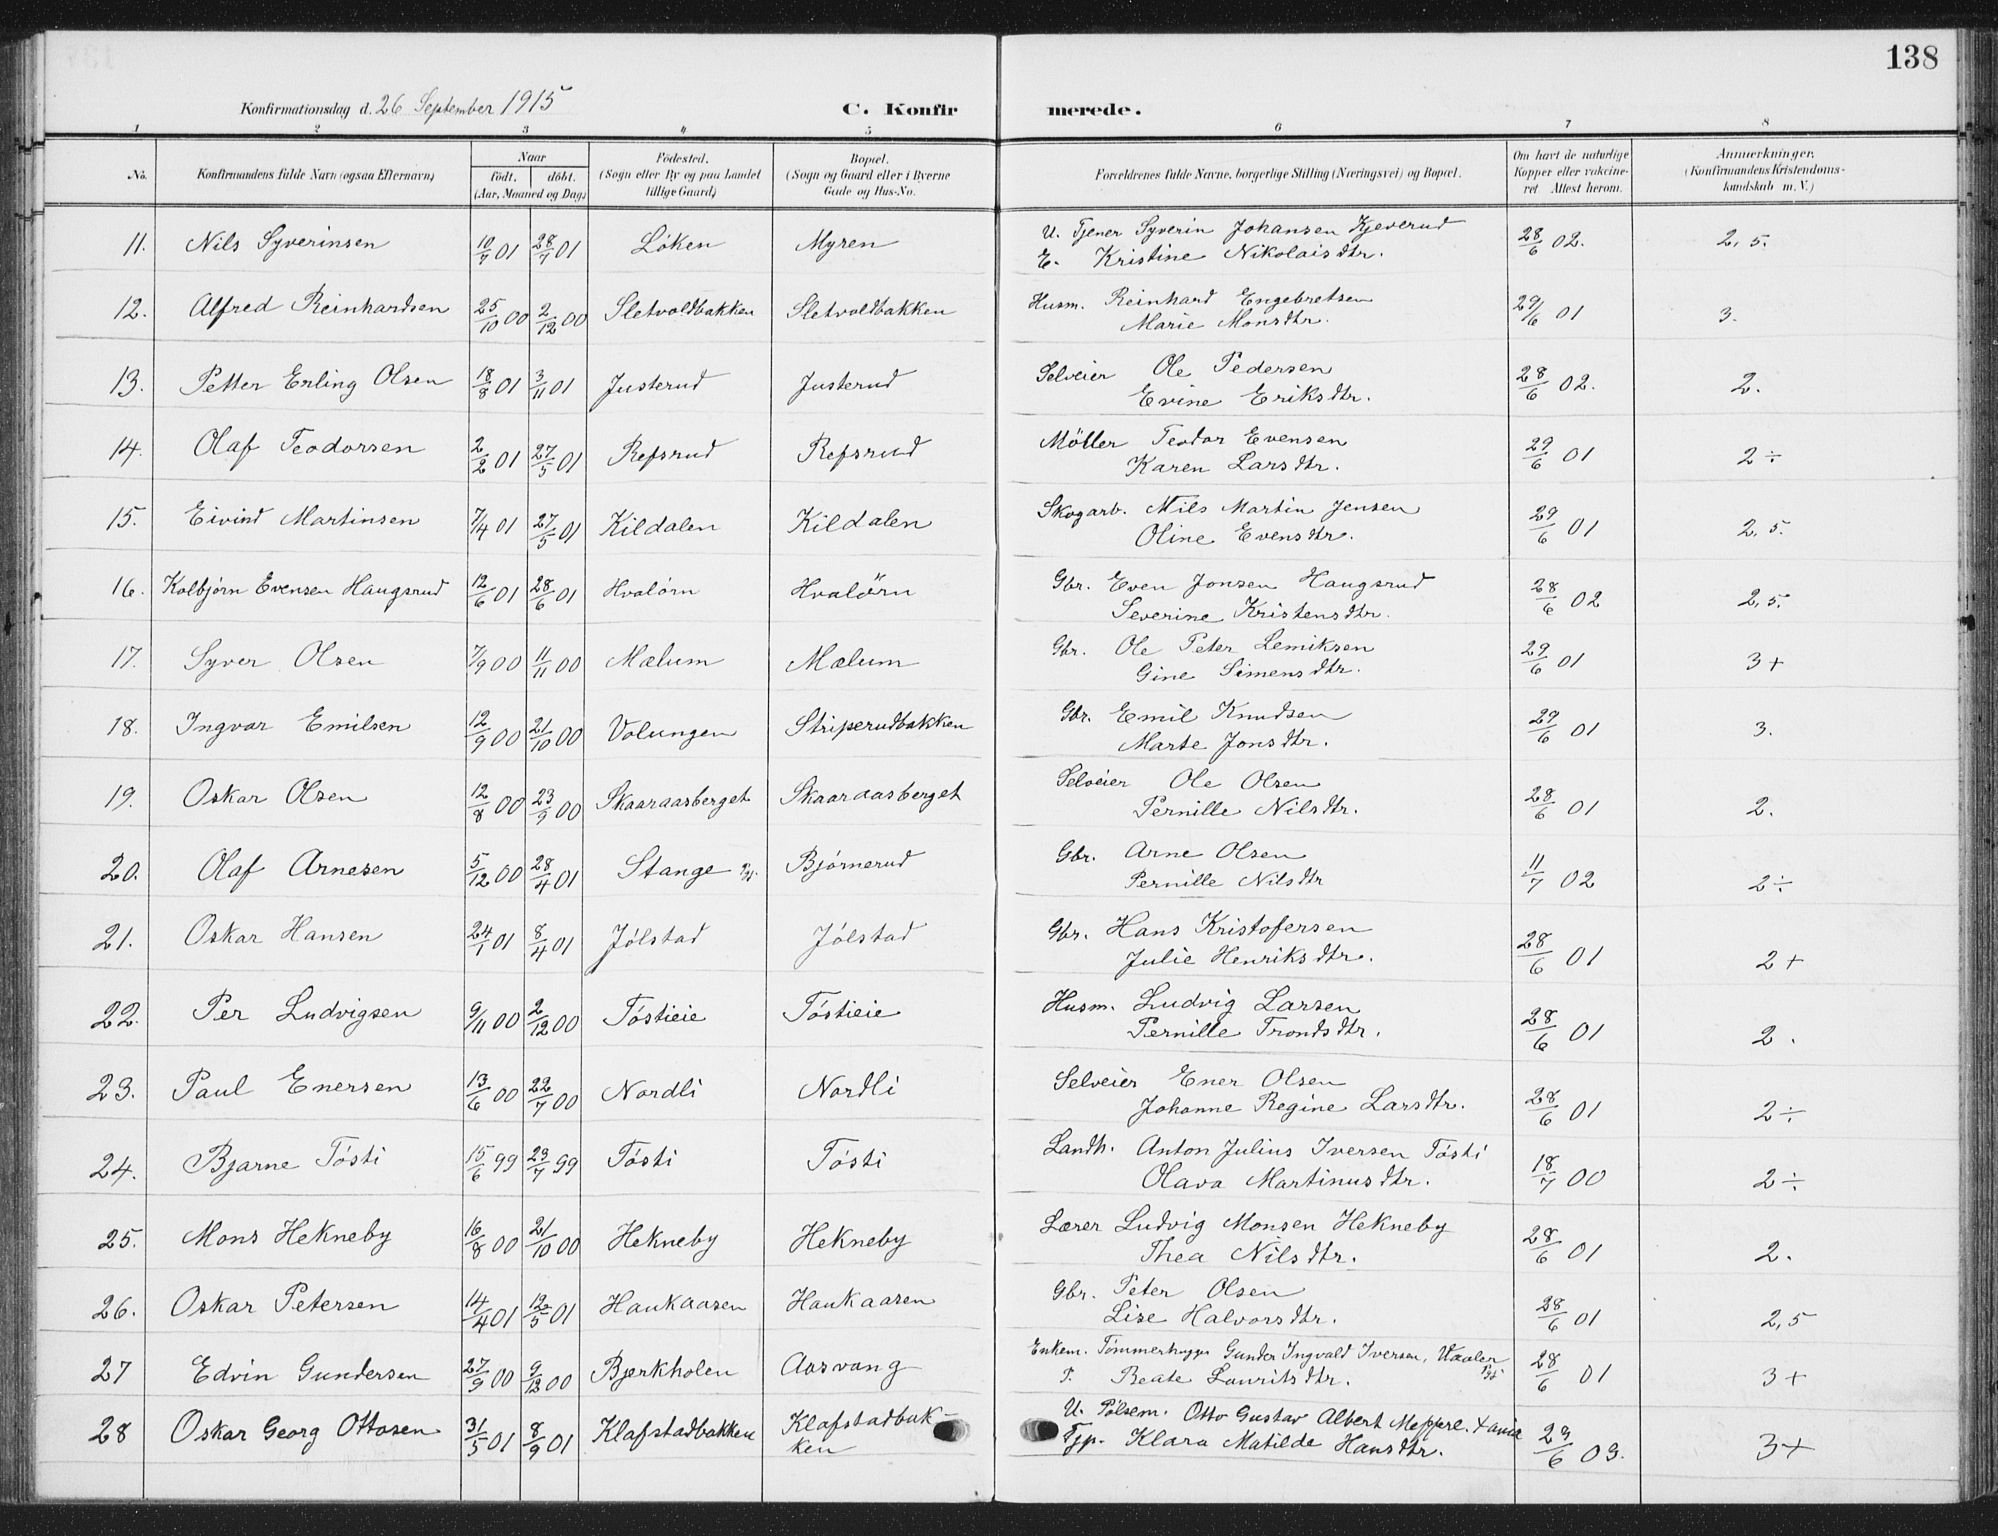 138
Konfirmationsdag d. 26 September 1915 C. Konfirmerede.
1 2 3 4 5 6 7 8
No. Konfirmandens fulde Navn (ogsaa Efternavn) Naar født. døbt. (Aar, Maaned og Dag) Fødested. (Sogn eller By og paa Landet tillige Gaard) Bopæl. (Sogn og Gaard eller i Byerne Gade og Hus-No. Forældrenes fulde Navne, borgerlige Stilling (Næringsvei) og Bopæl. Om havt de naturlige Kopper eller vakcineret Attest herom. Anmærkninger. (Konfirmandens Kristendomskundskab m. V.)
11. Nils Syverinsen 10/7 01 28/7 01 Løken Myren U. Tjener Syverin Johansen Kjeverud 28/6 02. 2,5.
E. Kristine Nikolaisdtr.
12. Alfred Reinhardsen 25/10 00 2/12 00 Sletvoldbakken Sletvoldbakken Husm. Reinhard Engebretsen 29/6 01 3.
Marie Monsdtr.
13. Petter Erling Olsen 18/8 01 3/11 01 Justerud Justerud Selveier Ole Pedersen 28/6 02. 2.
Evine Eriksdtr.
14. Olaf Teodorsen 2/2 01 27/5 01 Refsrud Refsrud Møller Teodor Evensen 29/6 01 2÷
Karen Larsdtr.
15. Eivind Martinsen 7/4 01 27/5 01 Kildalen Kildalen Skogarb. Nils Martin Jensen 29/6 01 2,5.
Oline Evensdtr.
16. Kolbjørn Evensen Haugsrud 12/6 01 28/6 01 Hvalørn Hvalörn Gbr. Even Jonsen Haugsrud 28/6 02 2,5.
Severine Kristensdtr.
17. Syver Olsen 7/9 00 11/11 00 Mælum Mælum Gbr. Ole Peter Lemiksen 29/6 01 3+
Gine Simensdtr.
18. Ingvar Emilsen 12/9 00 21/10 00 Volungen Striperudbakken Gbr. Emil Knudsen 29/6 01 3.
Marte Jonsdtr.
19. Oskar Olsen 12/8 00 23/9 00 Skaaraasberget Skaaraasberget Selveier Ole Olsen 28/6 01 2.
Pernille Nilsdtr.
20. Olaf Arnesen 5/12 00 28/4 01 Stange Pgj. Bjørnerud Gbr. Arne Olsen 11/7 02 2÷
Pernille Nilsdtr
21. Oskar Hansen 24/1 01 8/4 01 Jølstad Jølstad Gbr. Hans Kristofersen 28/6 01 2+
Julie Henriksdtr.
22. Per Ludvigsen 9/11 00 2/12 00 Tøstieie Tøstieie Husm. Ludvig Larsen 28/6 01 2.
Pernille Trondsdtr.
23. Paul Enersen 13/6 00 22/7 00 Nordli Nordli Selveier Ener Olsen 28/6 01 2÷
Johanne Regine Larsdtr.
24. Bjarne Tøsti 15/6 99 23/7 99 Tøsti Tøsti Landh. Anton Julius Iversen Tøsti 18/7 00 2÷
Olava Martinusdtr.
25. Mons Hekneby 16/8 00 21/10 00 Hekneby Hekneby Lærer Ludvig Monsen Hekneby 28/6 01 2.
Thea Nilsdtr.
26. Oskar Petersen 14/4 01 12/5 01 Haukaasen Haukaasen Gbr. Peter Olsen 28/6 01 2,5
Lise Halvorsdtr.
27 Edvin Gundersen 27/9 00 9/12 00 Bjerkholen Aasvang Enkem. Tømmerhugger Gunder Ingvald Iversen, Vaaler Pgj. 28/6 01 3+
F. Beate Lauritsdtr.
28 Oskar Georg Ottosen 31/5 01 8/9 01 Klafstadbakken Klafstadbakken U. Pølsem. Otto Gustav Albert 29/6 03. 3+
Tjp. Klara Matilde Hansdtr.